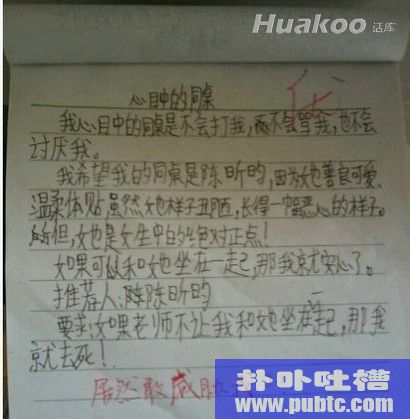 Huakoo 话库
心目中的同桌
我心目中的同桌是不会打我,不会骂我,也不会
讨厌我。
我希望我的同桌是陈昕昀,因为她善良可爱、
温柔体贴,虽然她样子丑陋,长得一幅恶心的样子。
但,她也是女生中的绝对正点!
如果可以和她坐在一起,那我就安心了。
推荐人:陈昕昀
要求:如果老师不让我和她坐在一起,那我
就去死!
居然敢威胁
扑卟吐槽